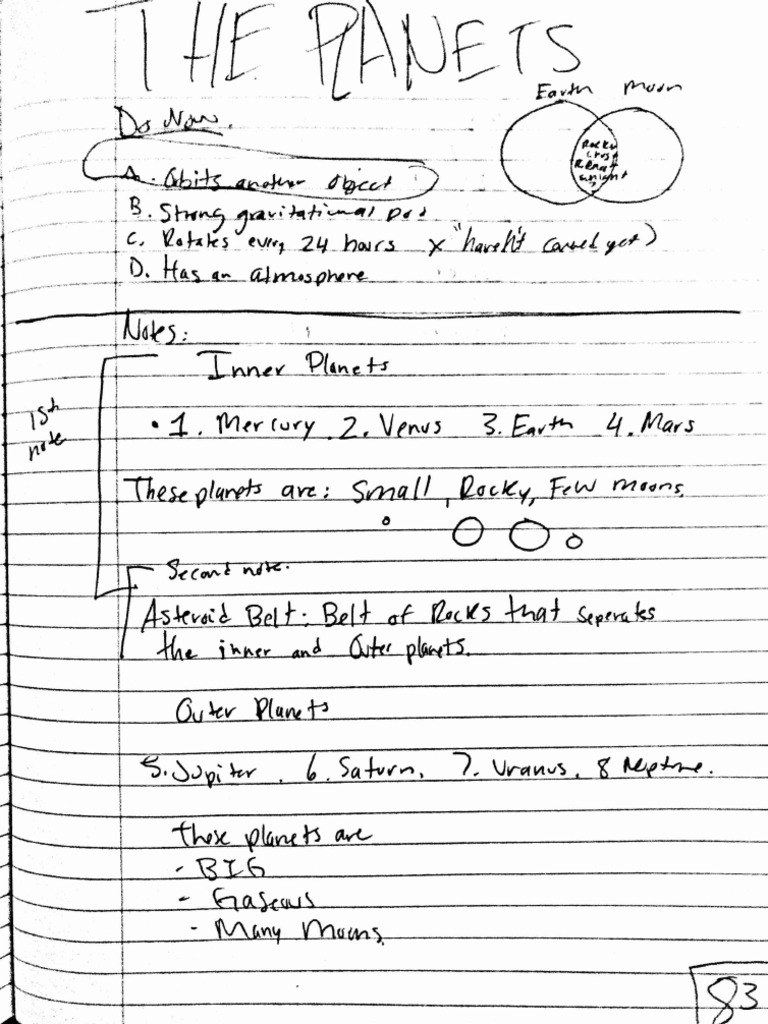 THE PLANETS
Earth Moon
Do Now.
Rocky
crust
A. Orbits another object
B. Strong gravitational
C. Rotates every 24 hours x "haven't covered yet)
D. Has an atmosphere
Notes:
Inner Planets
1st
note
• 1. Mercury. 2. Venus 3. Earth 4. Mars
These planets are: Small, Rocky, Few moons.
Second note.
Asteroid Belt: Belt of Rocks that seperates
the inner and Outer planets.
Outer Planets
5. Jupiter. 6. Saturn. 7. Uranus. 8 Neptune.
These planets are
- BIG
- Gaseous
- Many Moons.
83